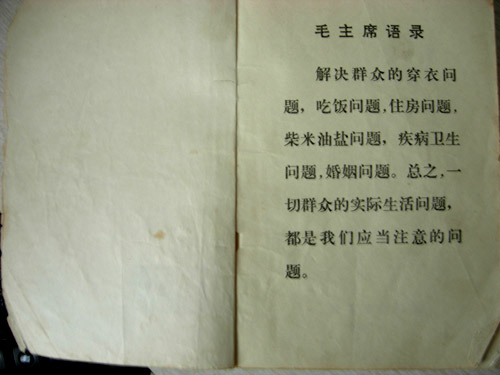 毛主席语录
解决群众的穿衣问
题，吃饭问题，住房问题，
柴米油盐问题，疾病卫生
问题，婚姻问题。总之，一
切群众的实际生活问题，
都是我们应当注意的问
题。